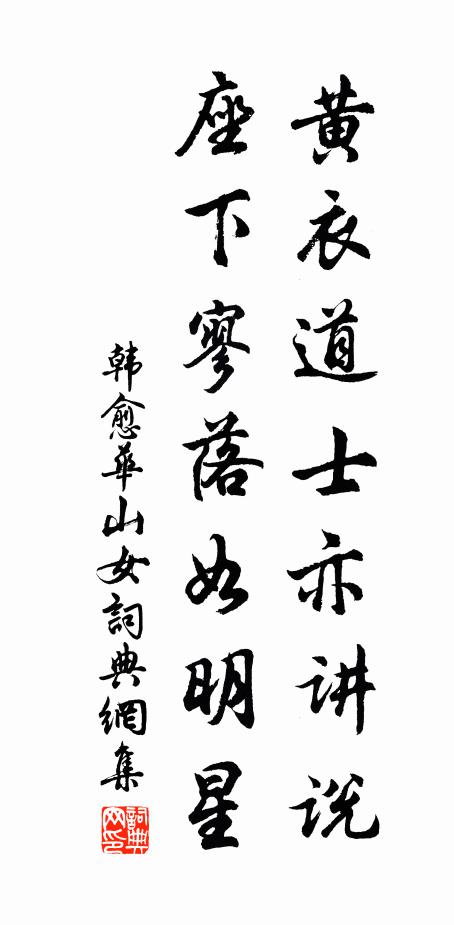 黄衣道士亦讲说
座下寥落如明星
韩愈華山女詞典網集
詞典
网印